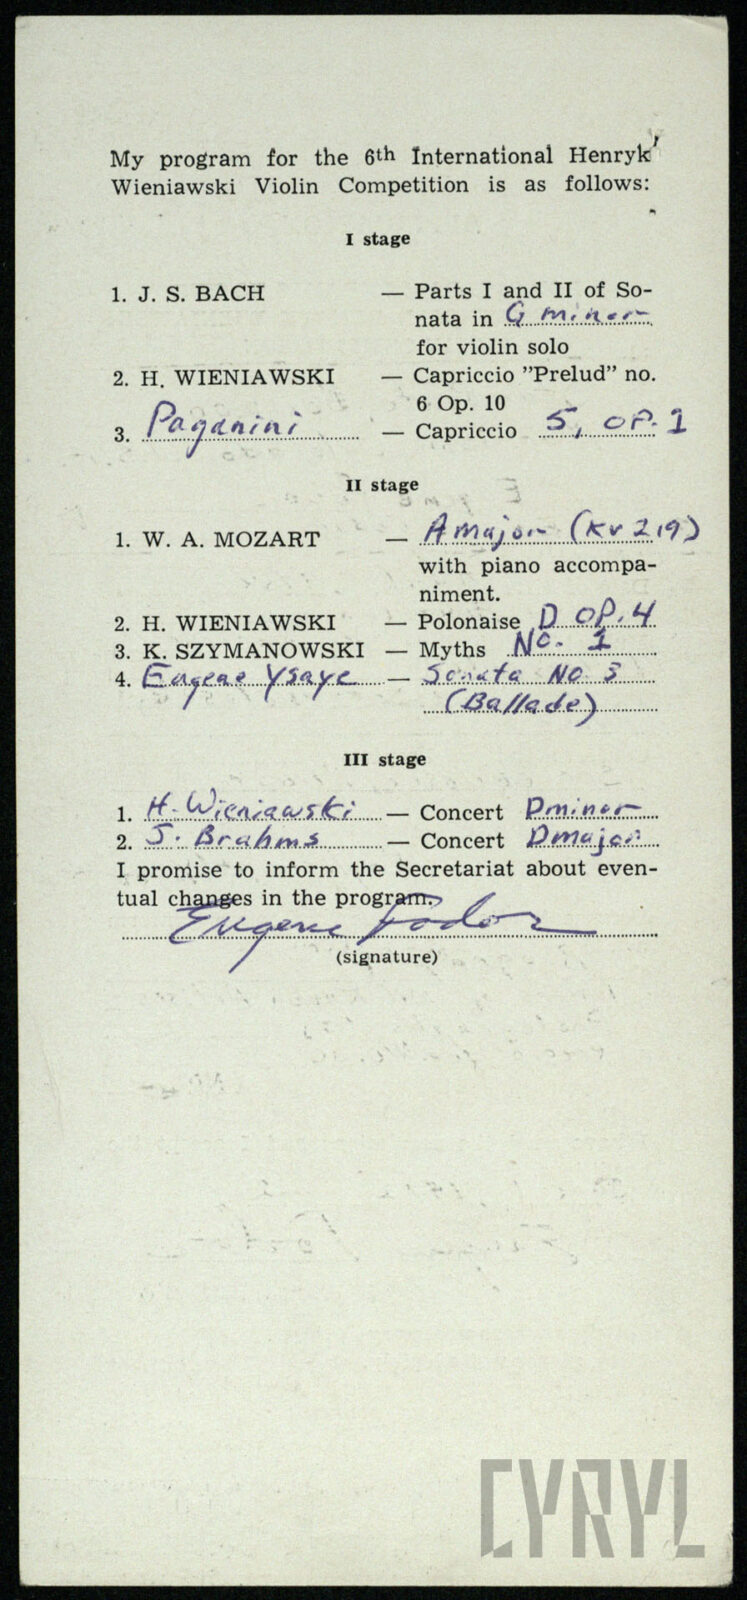 My program for the 6th International Henryk
Wieniawski Violin Competition is as follows:
I stage
1. J. S. BACH — Parts I and II of So-
nata in G minor
for violin solo
2. H. WIENIAWSKI — Capriccio "Prelud" no.
6 Op. 10
3. Paganini — Capriccio 5, OP. 1
II stage
1. W. A. MOZART — A major (KV 219)
with piano accompa-
niment.
2. H. WIENIAWSKI — Polonaise D OP. 4
3. K. SZYMANOWSKI — Myths No. 1
4. Eugene Ysaye — Sonata No 3
(Ballade)
III stage
1. H. Wieniawski — Concert D minor
2. J. Brahms — Concert D major
I promise to inform the Secretariat about even-
tual changes in the program.
Eugene Fodor
(signature)
CYRYL